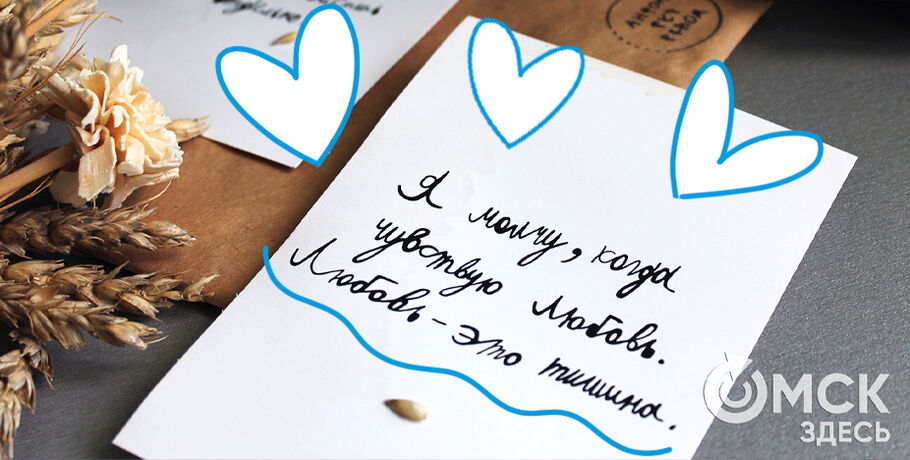 Я молчу, когда
чувствую любовь.
Любовь - это тишина.
ОМСК
ЗДЕСЬ